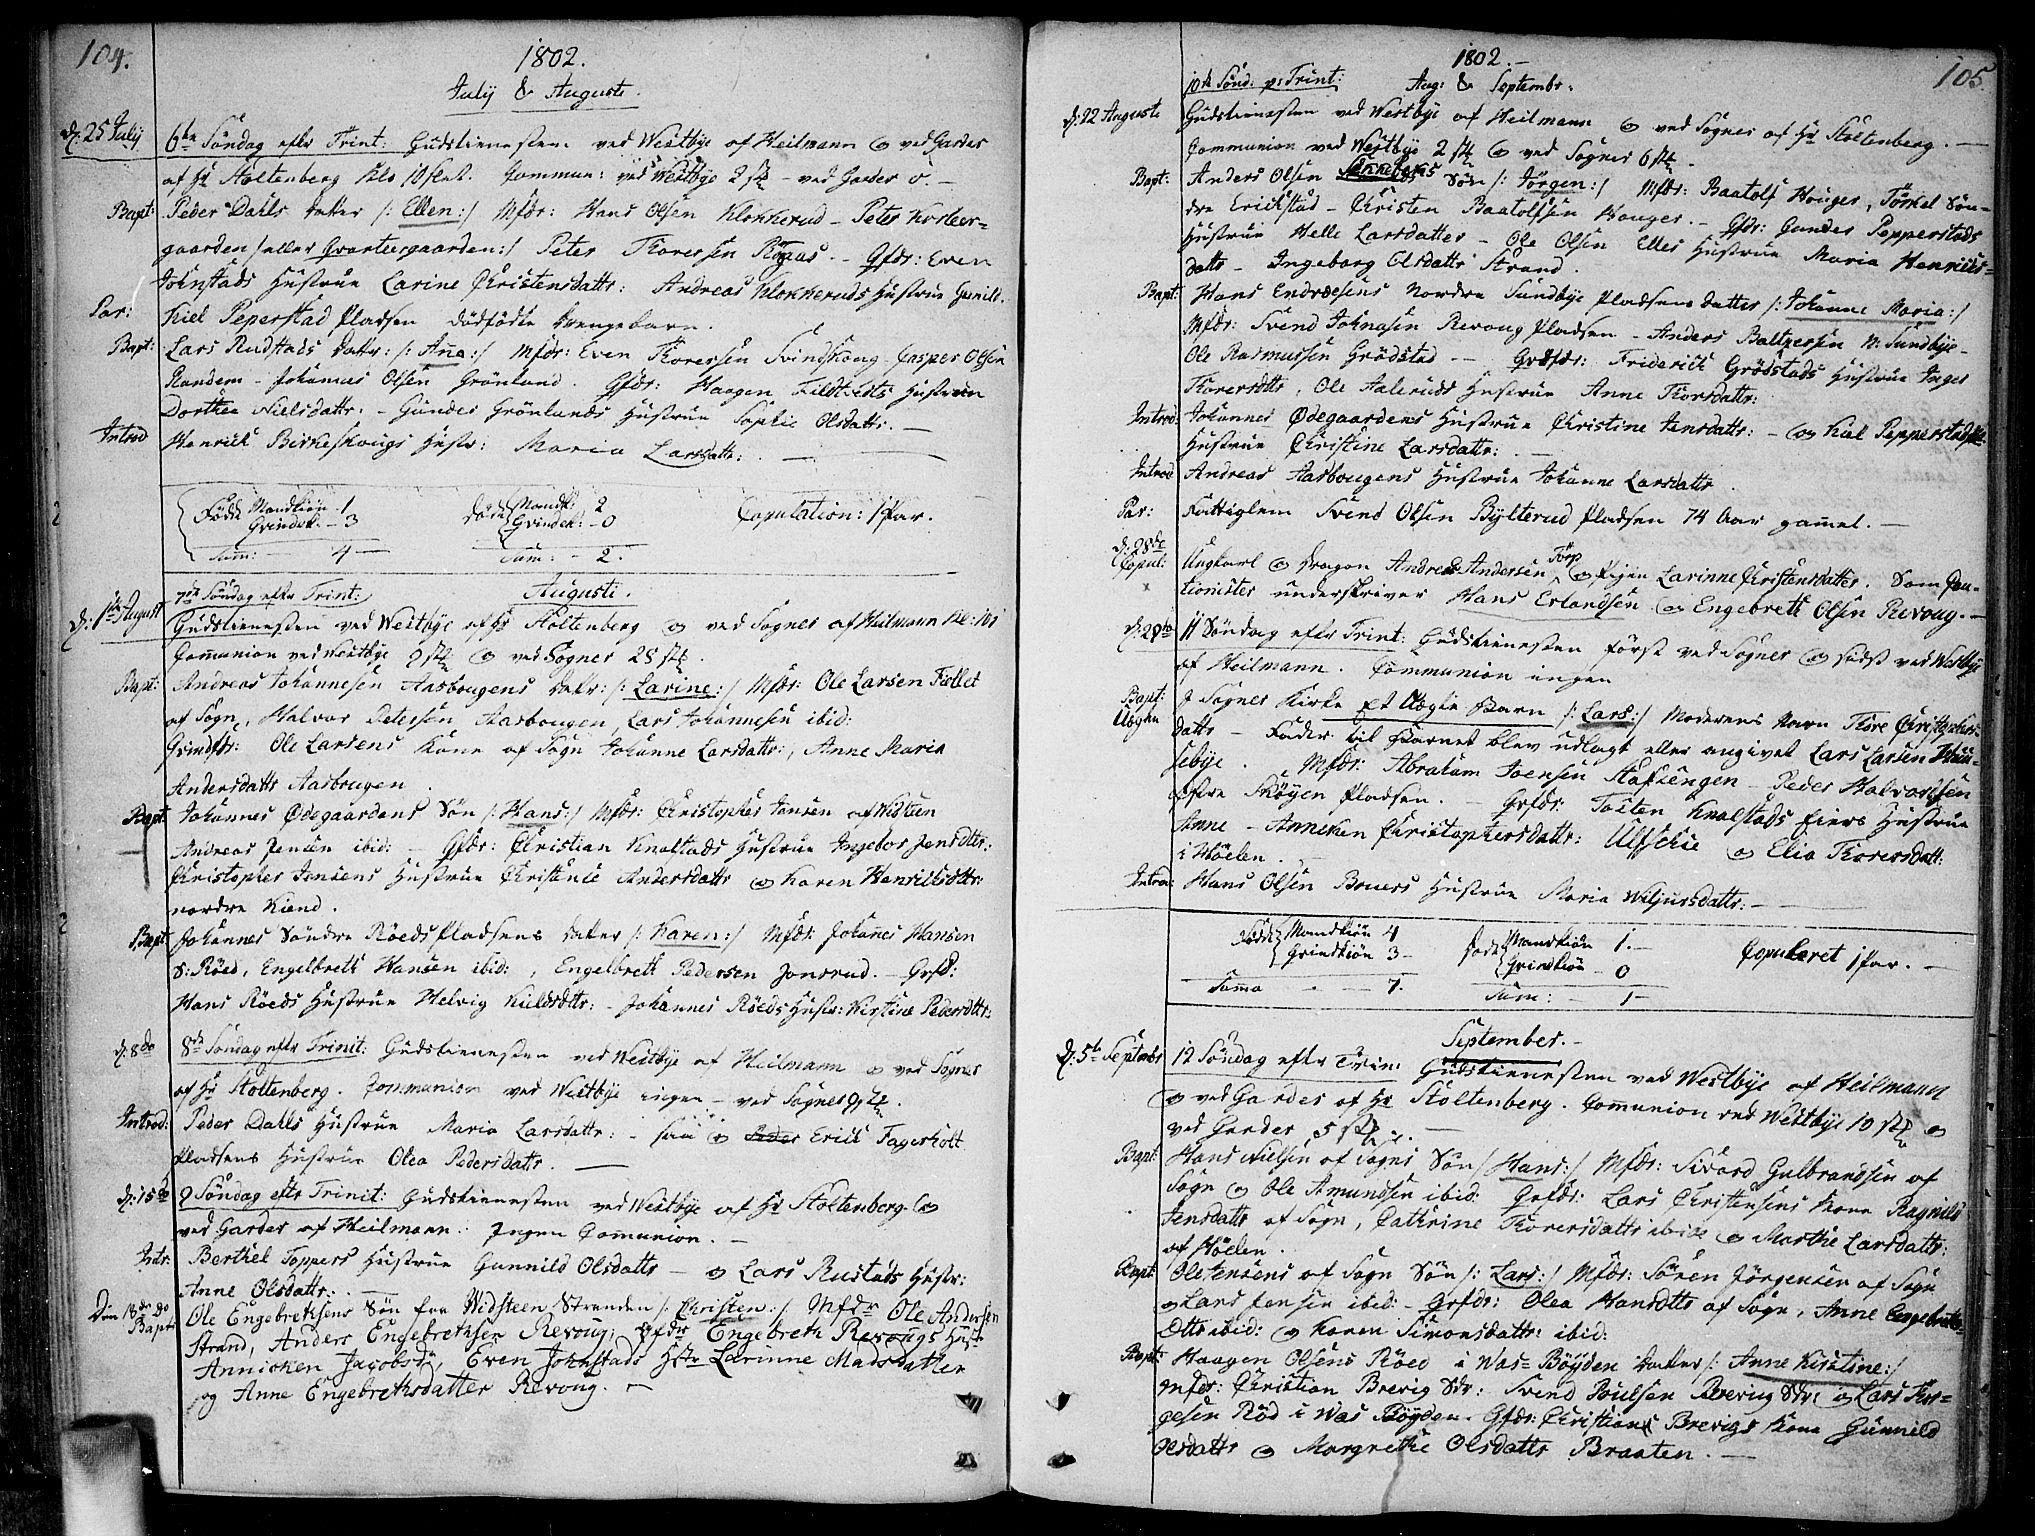 104.
1802.
July & Augusti.
d: 25 July
6te Söndag efter Trint: Gudstienesten ved Westbye af Heilmann og ved Garder
af Hr Stoltenberg Klo 10 slet. Commun: ved Westbye 2 stk - ved Garder 0. -
Bapt: Peder Dahls datter /: Ellen :/ Mfdr: Hans Olsen Klokkerud - Peter Korteer-
gaarden /: eller Qvarteergaarden :/ Peter Thoresen - Gfdr: Even
Johnstads Hustrue Larine Christensdattr: Andreas Klokkeruds Hustrue Gunild.
Par: Kiel Peperstad Pladsen dödfödte drengebarn.
Bapt: Lars Rustads dattr: /: Ana :/ Mfdr: Even Thoresen Svindskoug - Jasper Olsen
Randem - Johannes Olsen Grönland. Gfdr: Haagen Hustrue
Dorthea Nielsdattr: - Gunder Grönlands Hustrue Sophie Olsdattr. -
Introd Henrick Birkeskougs Hustr: Maria Larsdattr: . -
Födte Mandkiön - 1
Qvindek: - 3
Sum: - 4 -
döde Mandk: 2
Qvindek: - 0
Sum: - 2.
Copulation: 1 Par.
7de Söndag efter Trint:
Augusti.
d: 1ste August
Gudstienesten ved Westbye af Hr Stoltenberg og ved Sogner af Heilmann Kl: 10
Communion ved Westbye 2 stk og ved Sogner 28 stk.
Bapt: Andreas Johannesen Aasbougens datr: /: Larine :/ Mfdr: Ole Larsen Fiellet
af Sogn, Halvor Petersen Aasbougen, Lars Johannesen ibid:
Qvindfdr: Ole Larsens Kone af Sogn Johanne Larsdattr:, Anne Maria
Andersdattr Aasbougen.
Bapt: Johannes Ödegaardens Sön /: Hans :/ Mfdr: Christopher Jensen af Widsteen
Andreas Jensen ibid: - Gfdr: Christian Knapstads Hustrue Ingebor Jensdttr:
Christopher Jensens Hustrue Christense Andersdattr og Karen Henricksdttr:
nordre Kiend.
Bapt: Johannes Söndre Röeds Pladsens datter /: Karen :/ Mfdr: Johannes Hansen
S: Röed, Engelbrett Hansen ibid:, Engelbrett Pedersen Jonsrud. - Gvfd:
Hans Röeds Hustrue Helvig - Johannes Röeds Hustr: Kirstine Pedersdttr:
d: 8de
8de Söndag eftr Trinit: Gudstienesten ved Westbye af Heilmann og ved Sogner
af Hr Stoltenberg. Communion ved Westbye ingen - ved Sogner 9 stk.
Introd: Peder Dahls Hustrue Maria Larsdattr: - samt og Peder Erick Fagerholt
Pladsens Hustrue Olea Pedersdattr. -
d: 15de
9 Söndag eftr Trinit: Gudstienesten ved Westbye af Hr Stoltenberg og
ved Garder af Heilmann: Ingen Communion. -
Intr: Berthel Toppers Hustrue Gunnild Olsdattr - og Lars Rustads Hustr:
Anne Olsdattr: -
Den 18de do Bapt Ole Engebretsens Sön fra Widsteen Stranden /: Christen :/ Mfdr Ole Andersen
Strand, Anders Engebrethsen Revoug; Qvfdr Engebreth Revougs Hust
Annicken Jacobsd, Even Johnstads Hstr Larinne Madsdatter
og Anne Engebretsdatter Revoug. -
1802. -
105.
10de Sönd: p: Trint: Aug: & Septembr:
d: 22 Augusti
Gudstienesten ved Westbye af Heilmann og ved Sogner af Hr Stoltenberg. -
Communion ved Westbye 2 stk og ved Sogner 6 stk.
Bapt: Anders Olsen Sön /: Jörgen :/ Mfdr: Baatolf Houger, Törkel Sön-
dre Erickstad - Christen Baatolfsen Houger. - Gfdr: Gunder Pepperstads
Hustrue Helle Larsdatter - Ole Olsen Elles Hustrue Maria Henricks-
dattr - Ingeborg Olsdattr Strand.
Bapt: Hans Endresens Nordre Sundbye Pladsens datter /: Johanne Maria :/
Mfdr: Svend Johnsen Revoug Pladsen - Anders Baltzersen N: Sundbye -
Ole Rasmussen Grödstad - Gvfdr: Friderick Grödstads Hustrue Inger
Thorersdttr, Ole Aaleruds Hustrue Anne Thorsdattr:
Introd: Johannes Ödegaardens Hustrue Christine Jensdattr: - og Kiel Pepperstad
Hustrue Christine Larsdattr: . -
Introd Andreas Aasbougens Hustrue Johanne Larsdattr
Par: Fattiglem Svend Olsen Bylterud Pladsen 74 Aar gammel. -
d: 28de Copul: Ungkarl og Dragon Andreas Andersen Törp og Pigen Larinne Christensdatter. Som Cau-
tionister underskriver Hans Erlandsen og Engebrett Olsen Revoug. -
d: 29de 11 Söndag eftr Trint: Gudstienesten först ved Sogner og sidst ved Westbye
af Heilmann. Communion ingen
Bapt: Uægte I Sogner Kirke et Uægte Barn /: Lars :/ Moderens Navn Thore Christophers-
dattr - Fader til Barnet blev udlagt eller angivet Lars Larsen Huu-
sebye. Mfdr: Abraham Joensen - Peder Halvorssen
Östre Sköyen Pladsen. - Gvfdr: Tosten Knapstads Eiers Hustrue
Anne - Anneken Christophersdattr: Ulfschie og Elia Thorersdatt:
i Höelen.
Introd: Hans Olsen Bruers Hustrue Maria Wiljumsdattr: -
Födde Mandkiön 4
Qvindkiön 3 -
Summa - - 7.
döde Mandkiön 1. -
Qvindkiön - 0
Sum: - 1 -
Copuleret 1 Par. -
September. -
d: 5te Septembr
12 Söndag eftr Trin: Gudstienesten ved Westbye af Heilmann
og ved Garder af Hr Stoltenberg. Communion ved Westbye 10 stk og
ved Garder 5 stk. -
Bapt: Hans Nielsen af Sogns Sön /: Hans :/ Mfdr: Sivord Gulbrandsen af
Sogn og Ole Amundsen ibid: Gvfdr: Lars Christensens Kone Ragnild
Jensdattr af Sogn, Cathrine Thorersdattr ibid: og Marthe Larsdattr:
af Höelen.
Bapt: Ole Jensens af Sogn Sön /: Lars :/ Mfdr: Sören Jörgensen af Sogn
og Lars Jensen ibid: - Gvfdr: Olea Hansdttr af Sogn, Anne Engebrets-
Dttr ibid: og Karen Simonsdattr: ibid:
Bapt: Haagen Olsens Röed i Was-Böyden datter /: Anne Kirstine :/
Mfdr: Christian Brevig Sdr: Svend Poulsen Brevig Sdr: og Lars Tor-
gesen Röd i Was Böyden. Gfdr: Christians Brevigs Kone Gunnild
Olsdattr og Margrethe Olsdattr Braaten. -